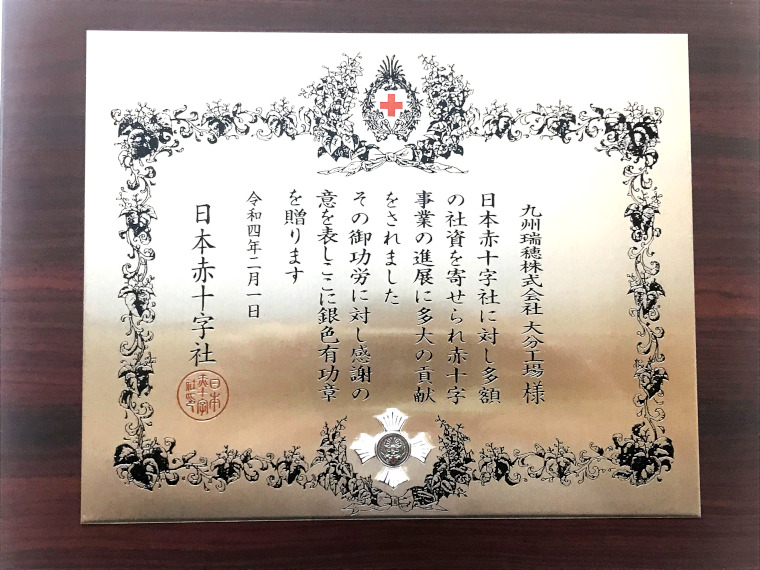 九州瑞穂株式会社 大分工場 様
日本赤十字社に対し多額
の社資を寄せられ赤十字
事業の進展に多大の貢献
をされました
その御功労に対し感謝の
意を表しここに銀色有功章
を贈ります
令和四年二月一日
日本赤十字社
日本
赤十字
社印